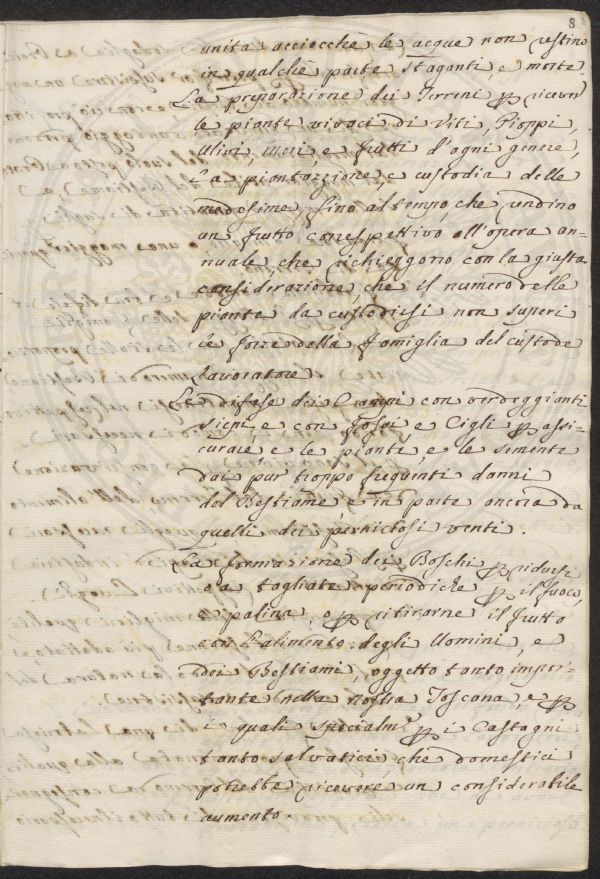 8
unita acciocchè le acque non restino
in qualche parte staganti e morte.
La preparazione dei Terreni p ricever
le piante vivaci di Viti, Pioppi,
Ulivi, Mori, e frutti d'ogni genere,
La piantazzione, e custodia delle
medesime, fino al tempo, che rendino
un frutto correspettivo all'opera an-
nuale, che richieggono con la giusta
considerazione, che il numero delle
piante da custodirsi non superi
le forze della famiglia del custode
Lavoratore.
Le difese dei Campi con verdeggianti
siepi, e con fossi e Cigli p assi-
curare, e le piante e le semente
dai pur troppo frequenti danni
del Bestiame, e in parte ancora da
quelli dei perniciosi venti.
La formazione dei Boschi p ridursi
o a tagliate periodiche p il fuoco,
o palina, o p ritirarne il frutto
con l'alimento degli Uomini, e
dei Bestiami, oggetto tanto impor-
tante nella nostra Toscana, e p
i quali specialmte p i Castagni
tanto selvatici, che domestici
potrebbe ricevere un considerabile
aumento.